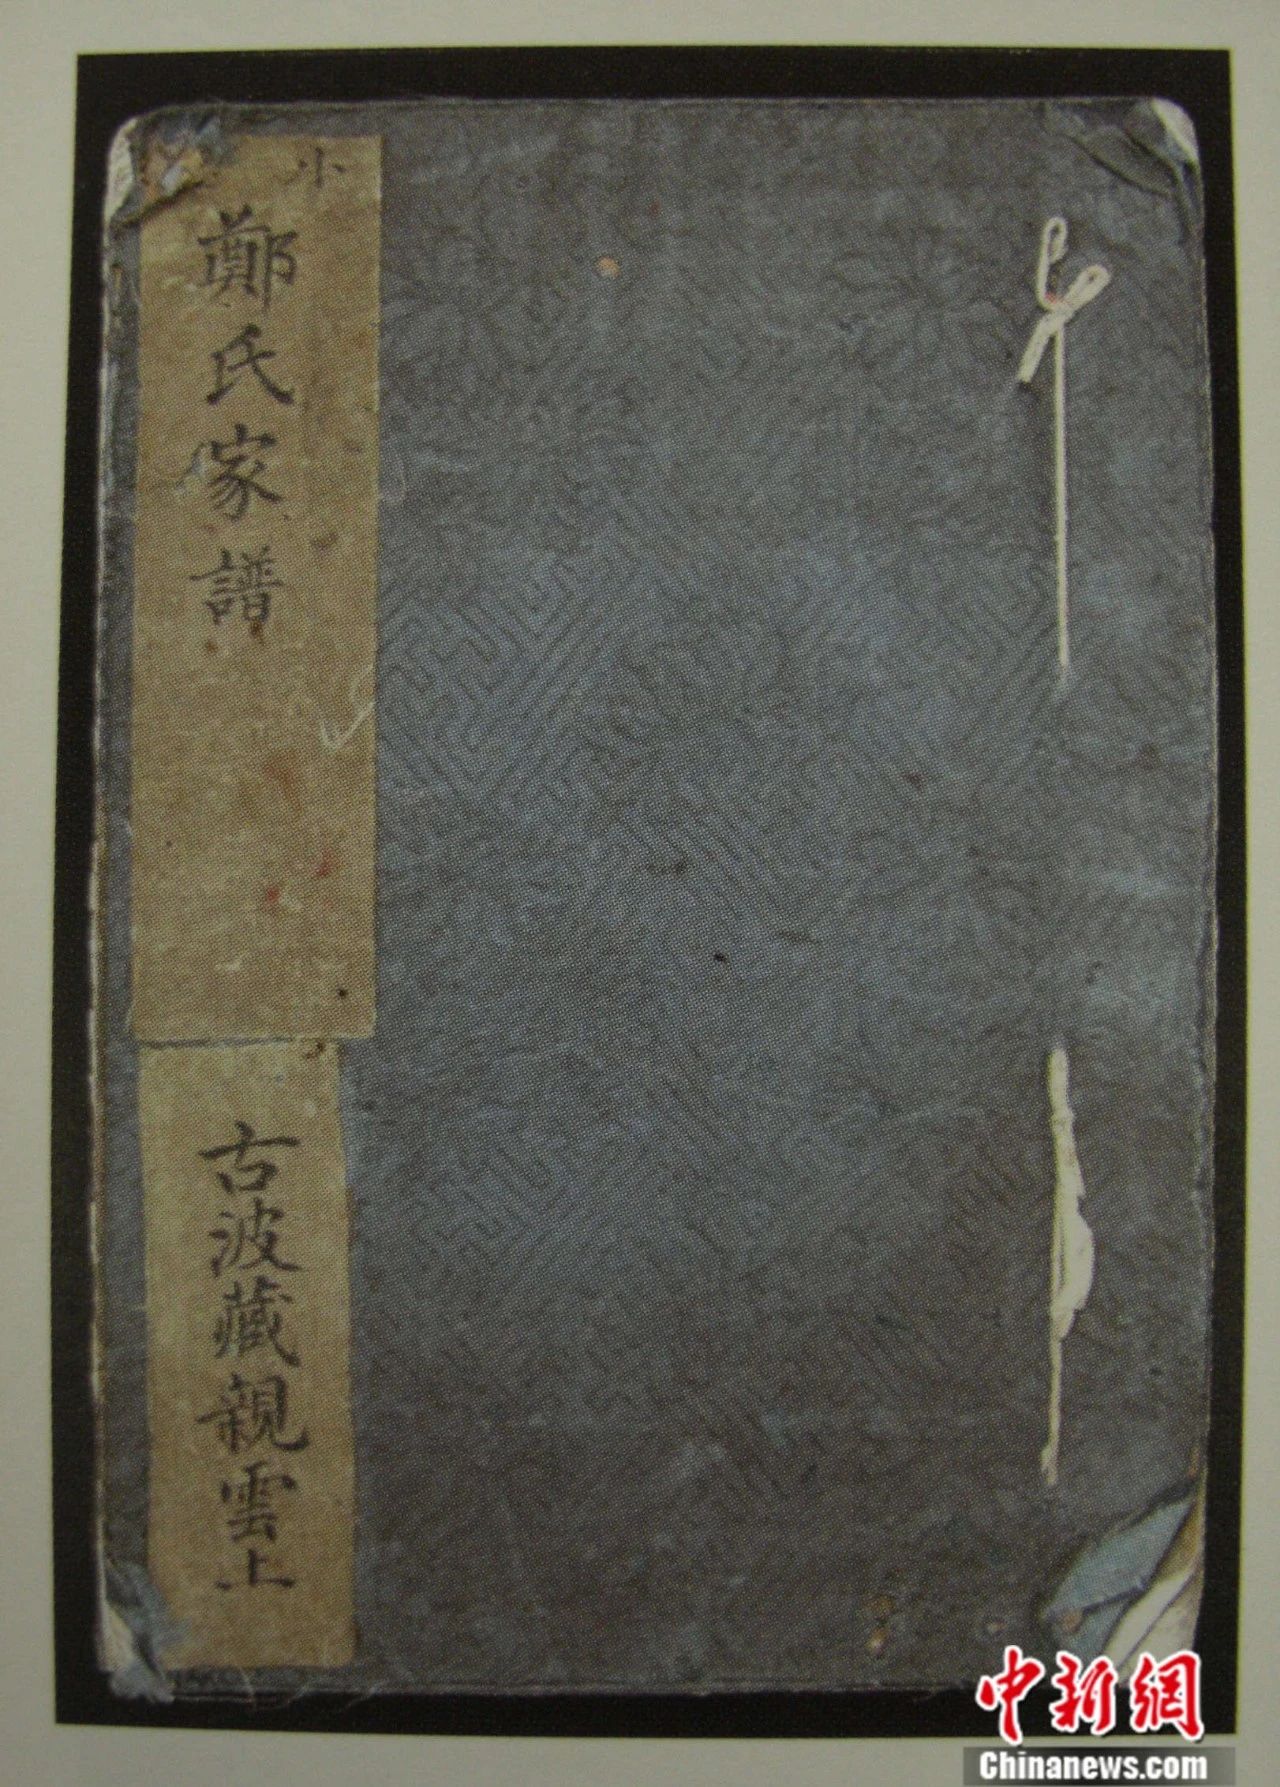 小
鄭氏家譜
古波藏親雲上
中新網
Chinanews.com